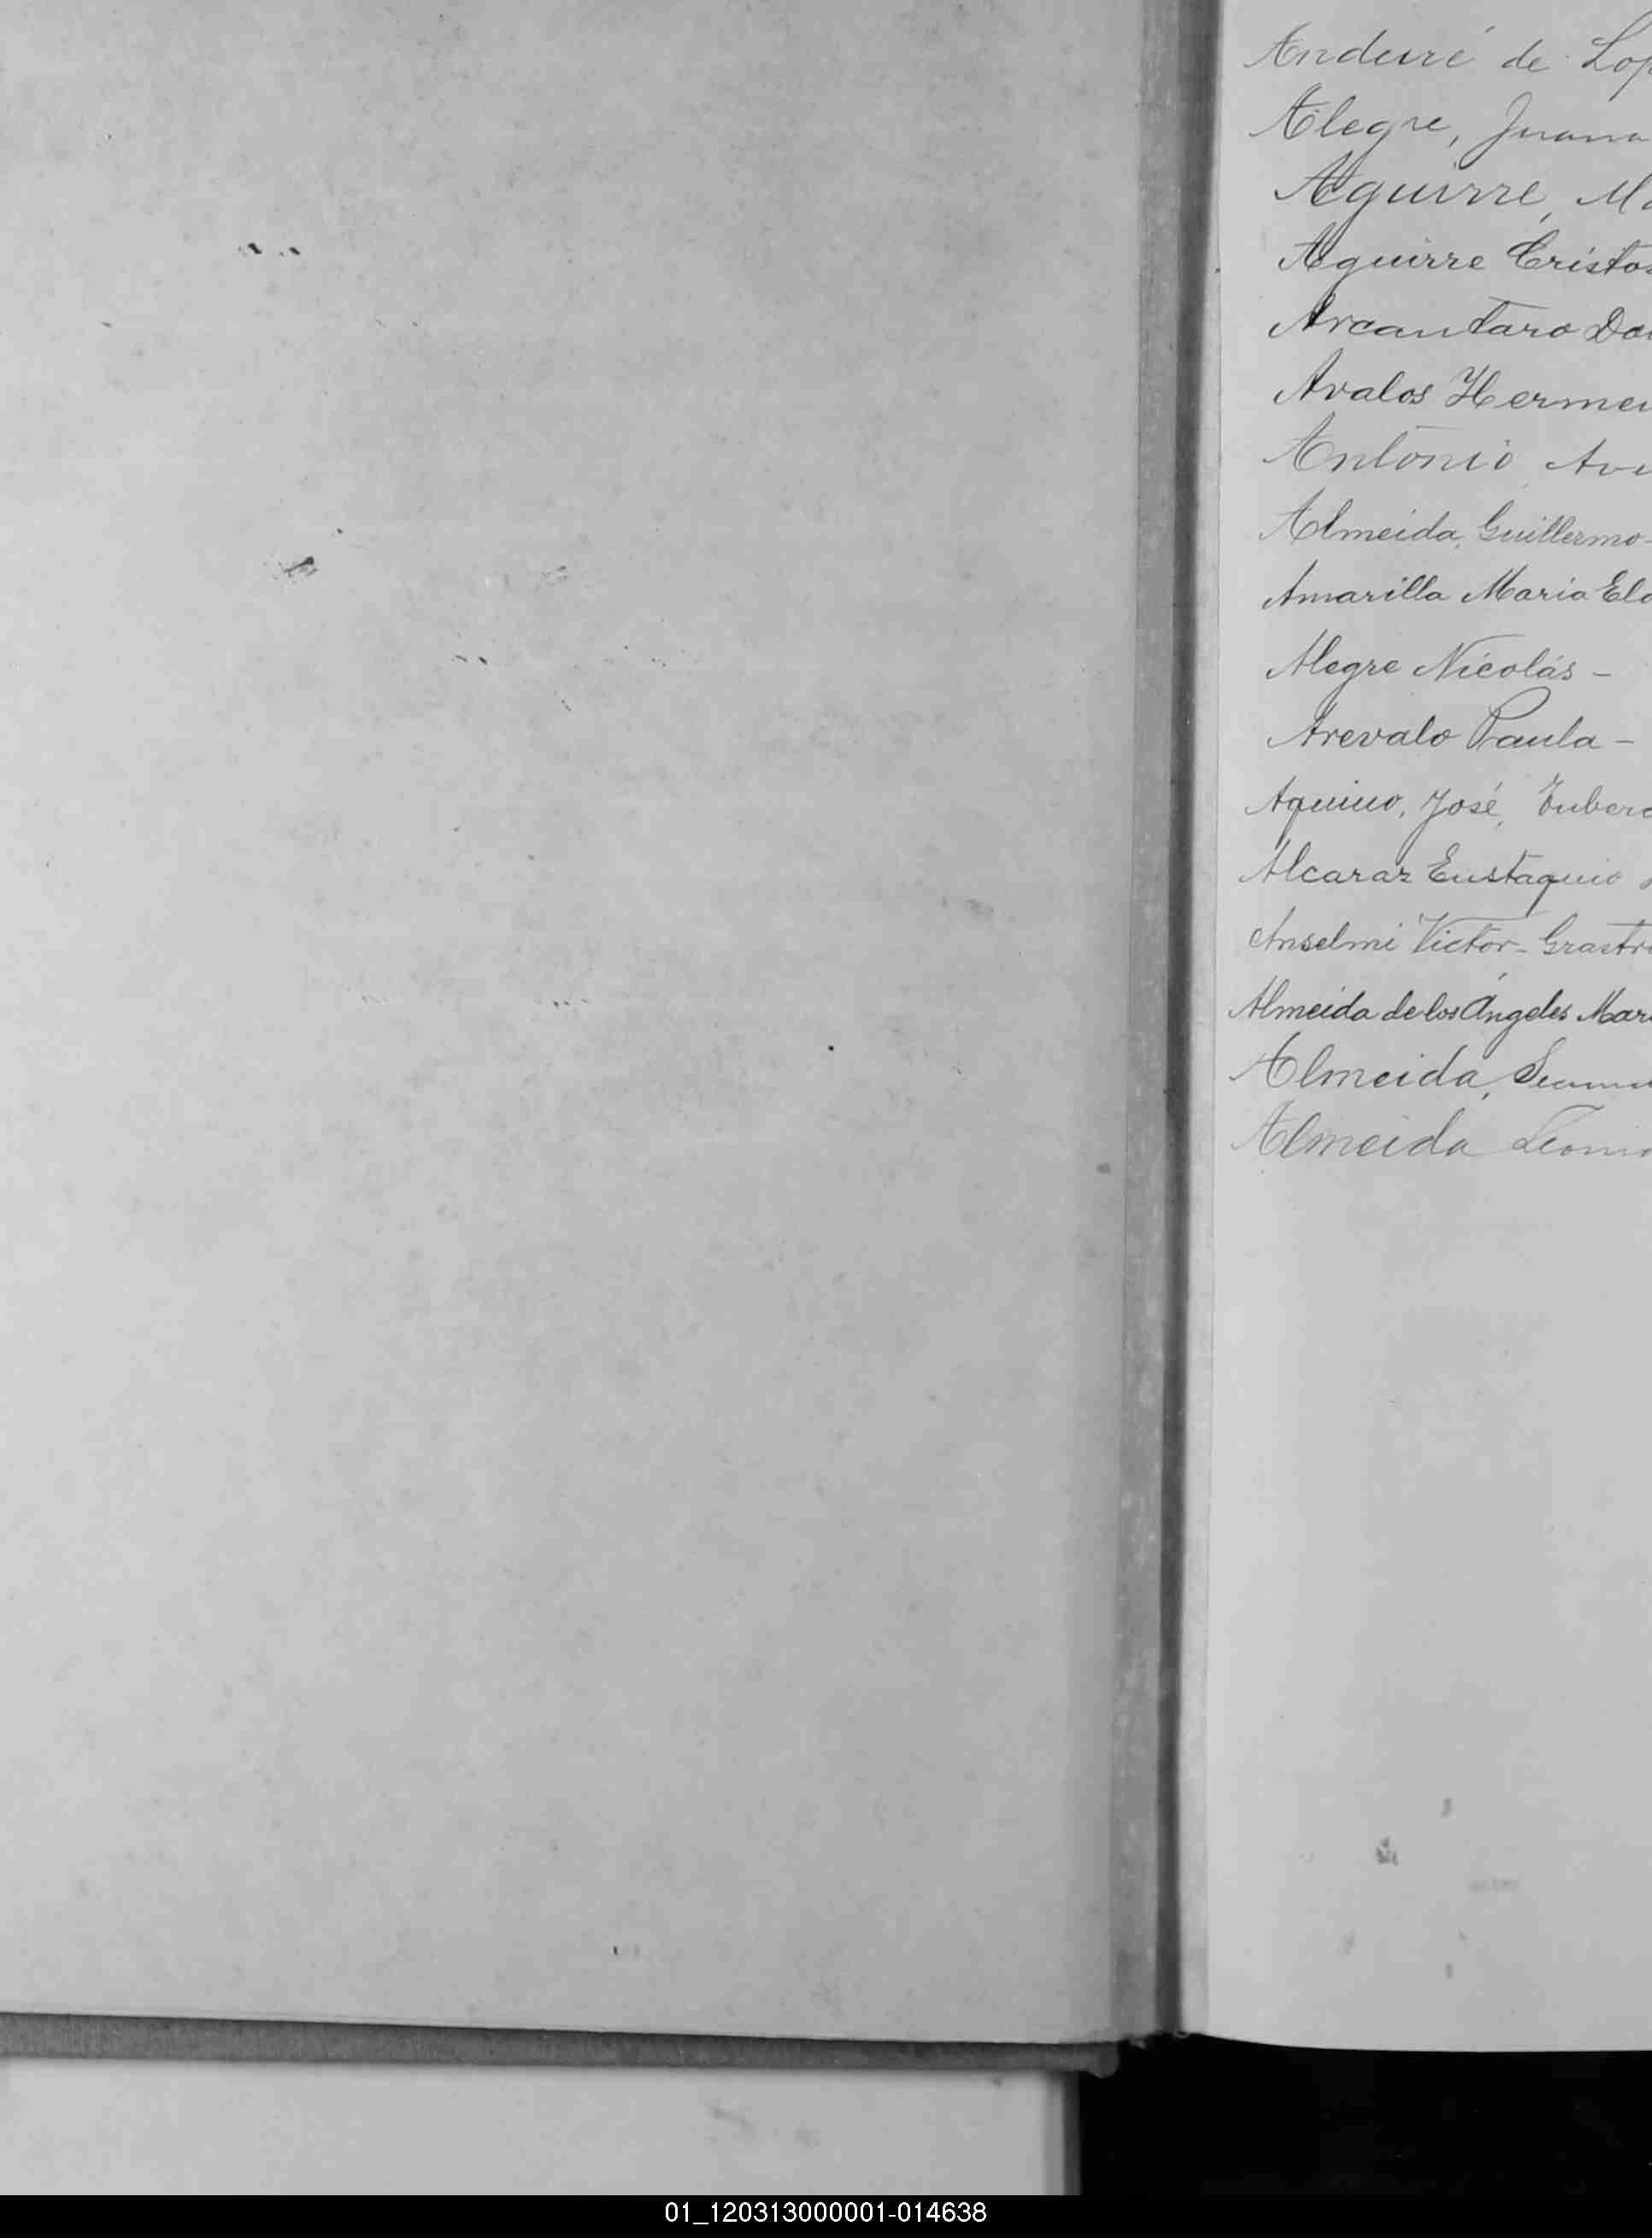 Anduré de Lop
Alegre, Juana
Aguirre, Ma
Aguirre Cristos
Arcantaro Do
Avalos Herme
Antonio, Av
Almeida, Guillermo-
Amarilla María El
Alegre Nicolás -
Arevalo Paula -
Aquino, José,
Alcaraz Eustaquio
Anselmi Victor-
Almeida de los Ángeles Mar
Almeida,
Almeida
01_120313000001-014638